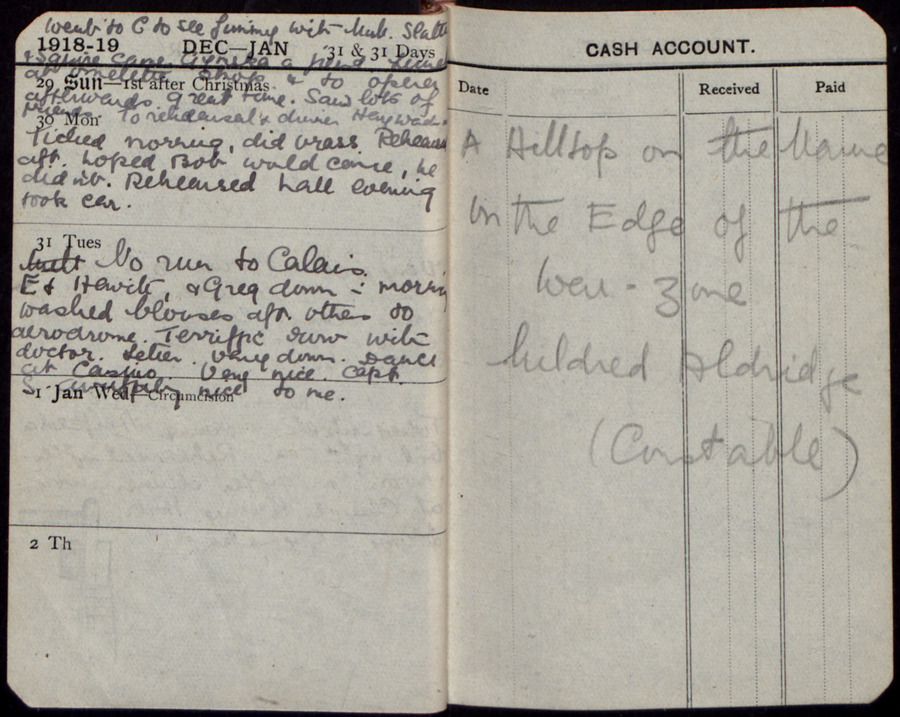 went to C to see Jimmy with Mub. Slatt
1918-19 DEC—JAN 31 & 31 Days
& Squire came. a
at omelette shop & to opera
29 Sun—1st after Christmas
afterwards. Great time. Saw lots of
friends. To rehearsal & dinner
30 Mon
Tidied morning, did brass. Rehearsal
aft. hoped Bob would come, he
didn't. Rehearsed hall evening
took car.
31 Tues
No run to Calais.
Et Hewitt, & Greg down - morning
washed blouses aft. others to
aerodrome. Terrific row with
doctor. Letter. Very down. Dance
at Casino. Very nice. Capt.
S. nice to me.
1 Jan Wed—Circumcision
2 Th
CASH ACCOUNT.
Date Received Paid
A Hilltop on the Marne
On the Edge of the
War-Zone
Mildred Aldridge
(Constable)